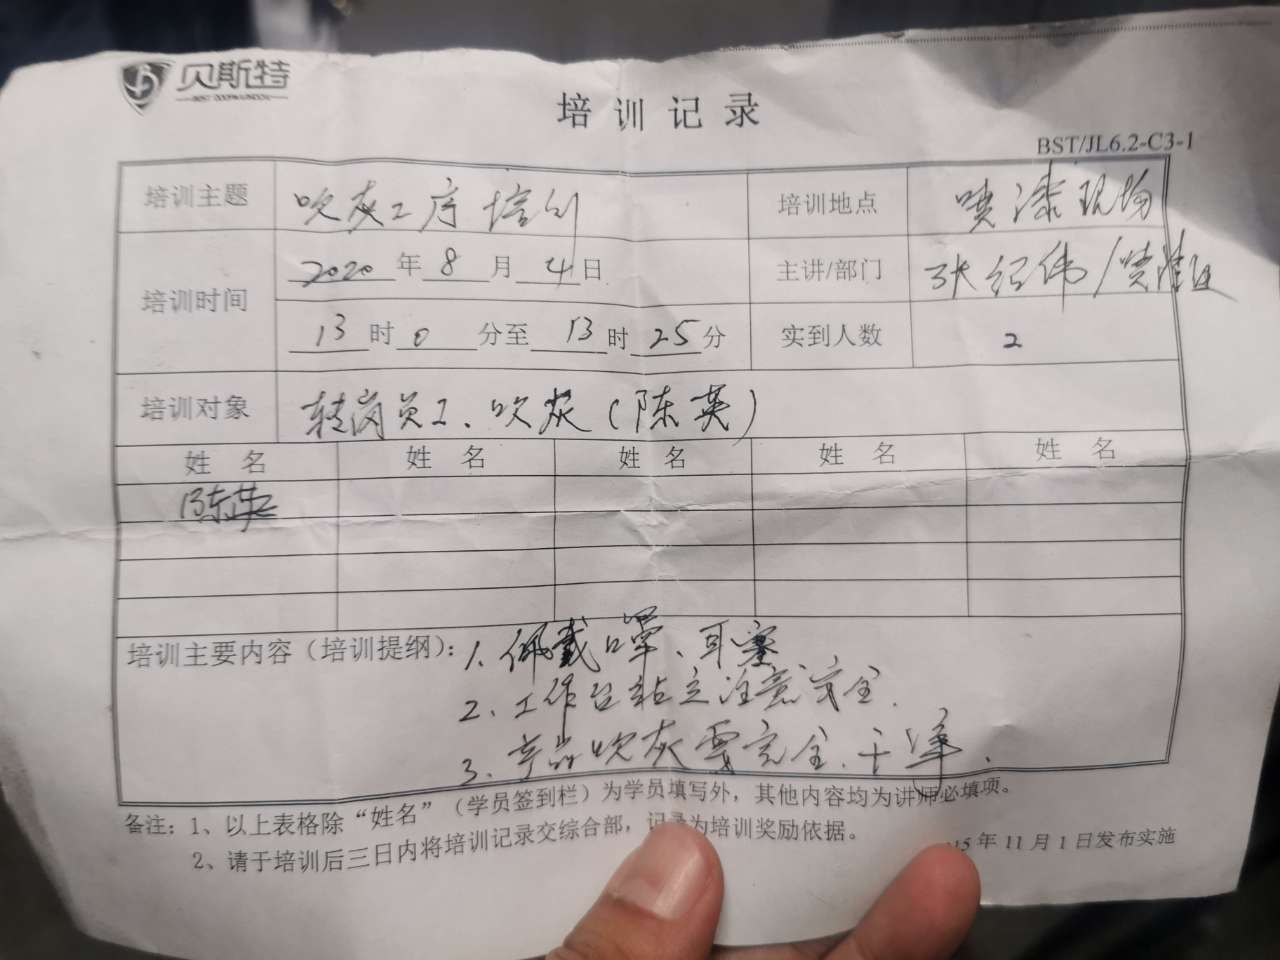 贝斯特
培训记录
BST/JL6.2-C3-1
培训主题 吹灰工序培训 培训地点 喷漆现场
培训时间 2020年8月4日 主讲/部门 张经伟/喷漆
13时0分至13时25分 实到人数 2
培训对象 转岗员工、吹灰(陈英)
姓名 姓名 姓名 姓名 姓名
陈英
培训主要内容(培训提纲): 1、佩戴口罩、耳塞
2、工作台站立注意安全.
3、产品吹灰要完全、干净.
备注:1、以上表格除“姓名”(学员签到栏)为学员填写外,其他内容均为讲师必填项。
2、请于培训后三日内将培训记录交综合部,记录为培训奖励依据。
15年11月1日发布实施